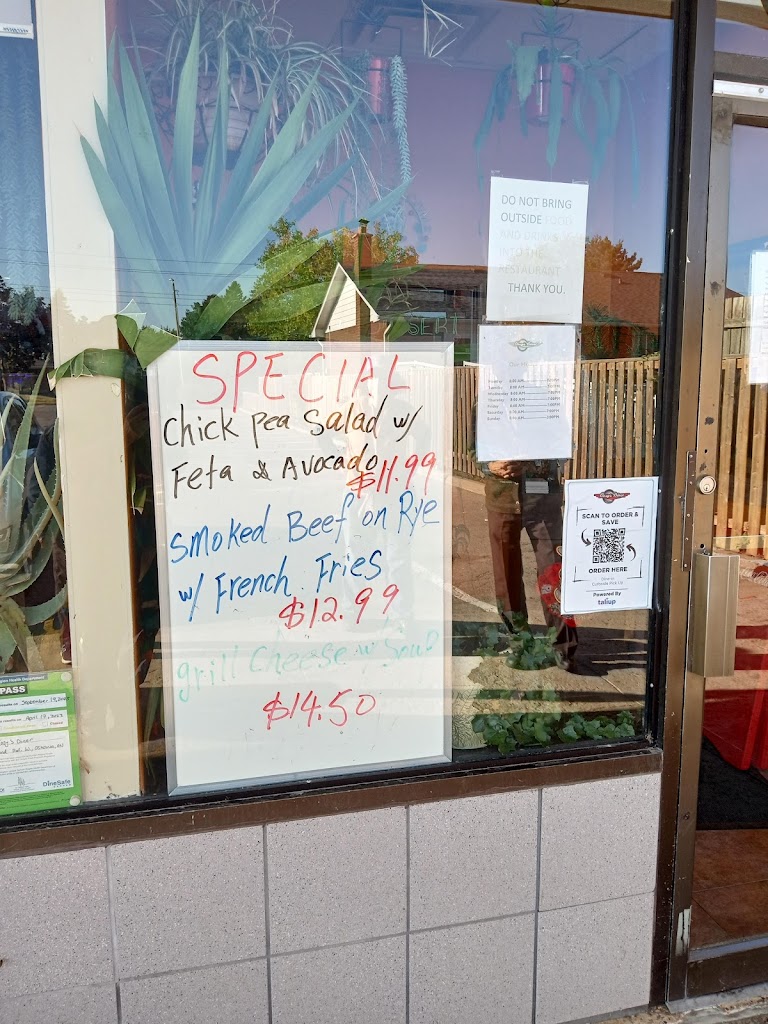 SPECIAL
Chick Pea Salad w/
Feta & Avocado
$11.99
Smoked Beef on Rye
w/ French Fries
$12.99
grill Cheese w Soup
$14.50
DO NOT BRING
OUTSIDE FOOD
AND DRINKS
INTO THE
RESTAURANT
THANK YOU.
SCAN TO ORDER &
SAVE
ORDER HERE
Curbside Pick Up
Powered By
taliup
PASS
DineSafe